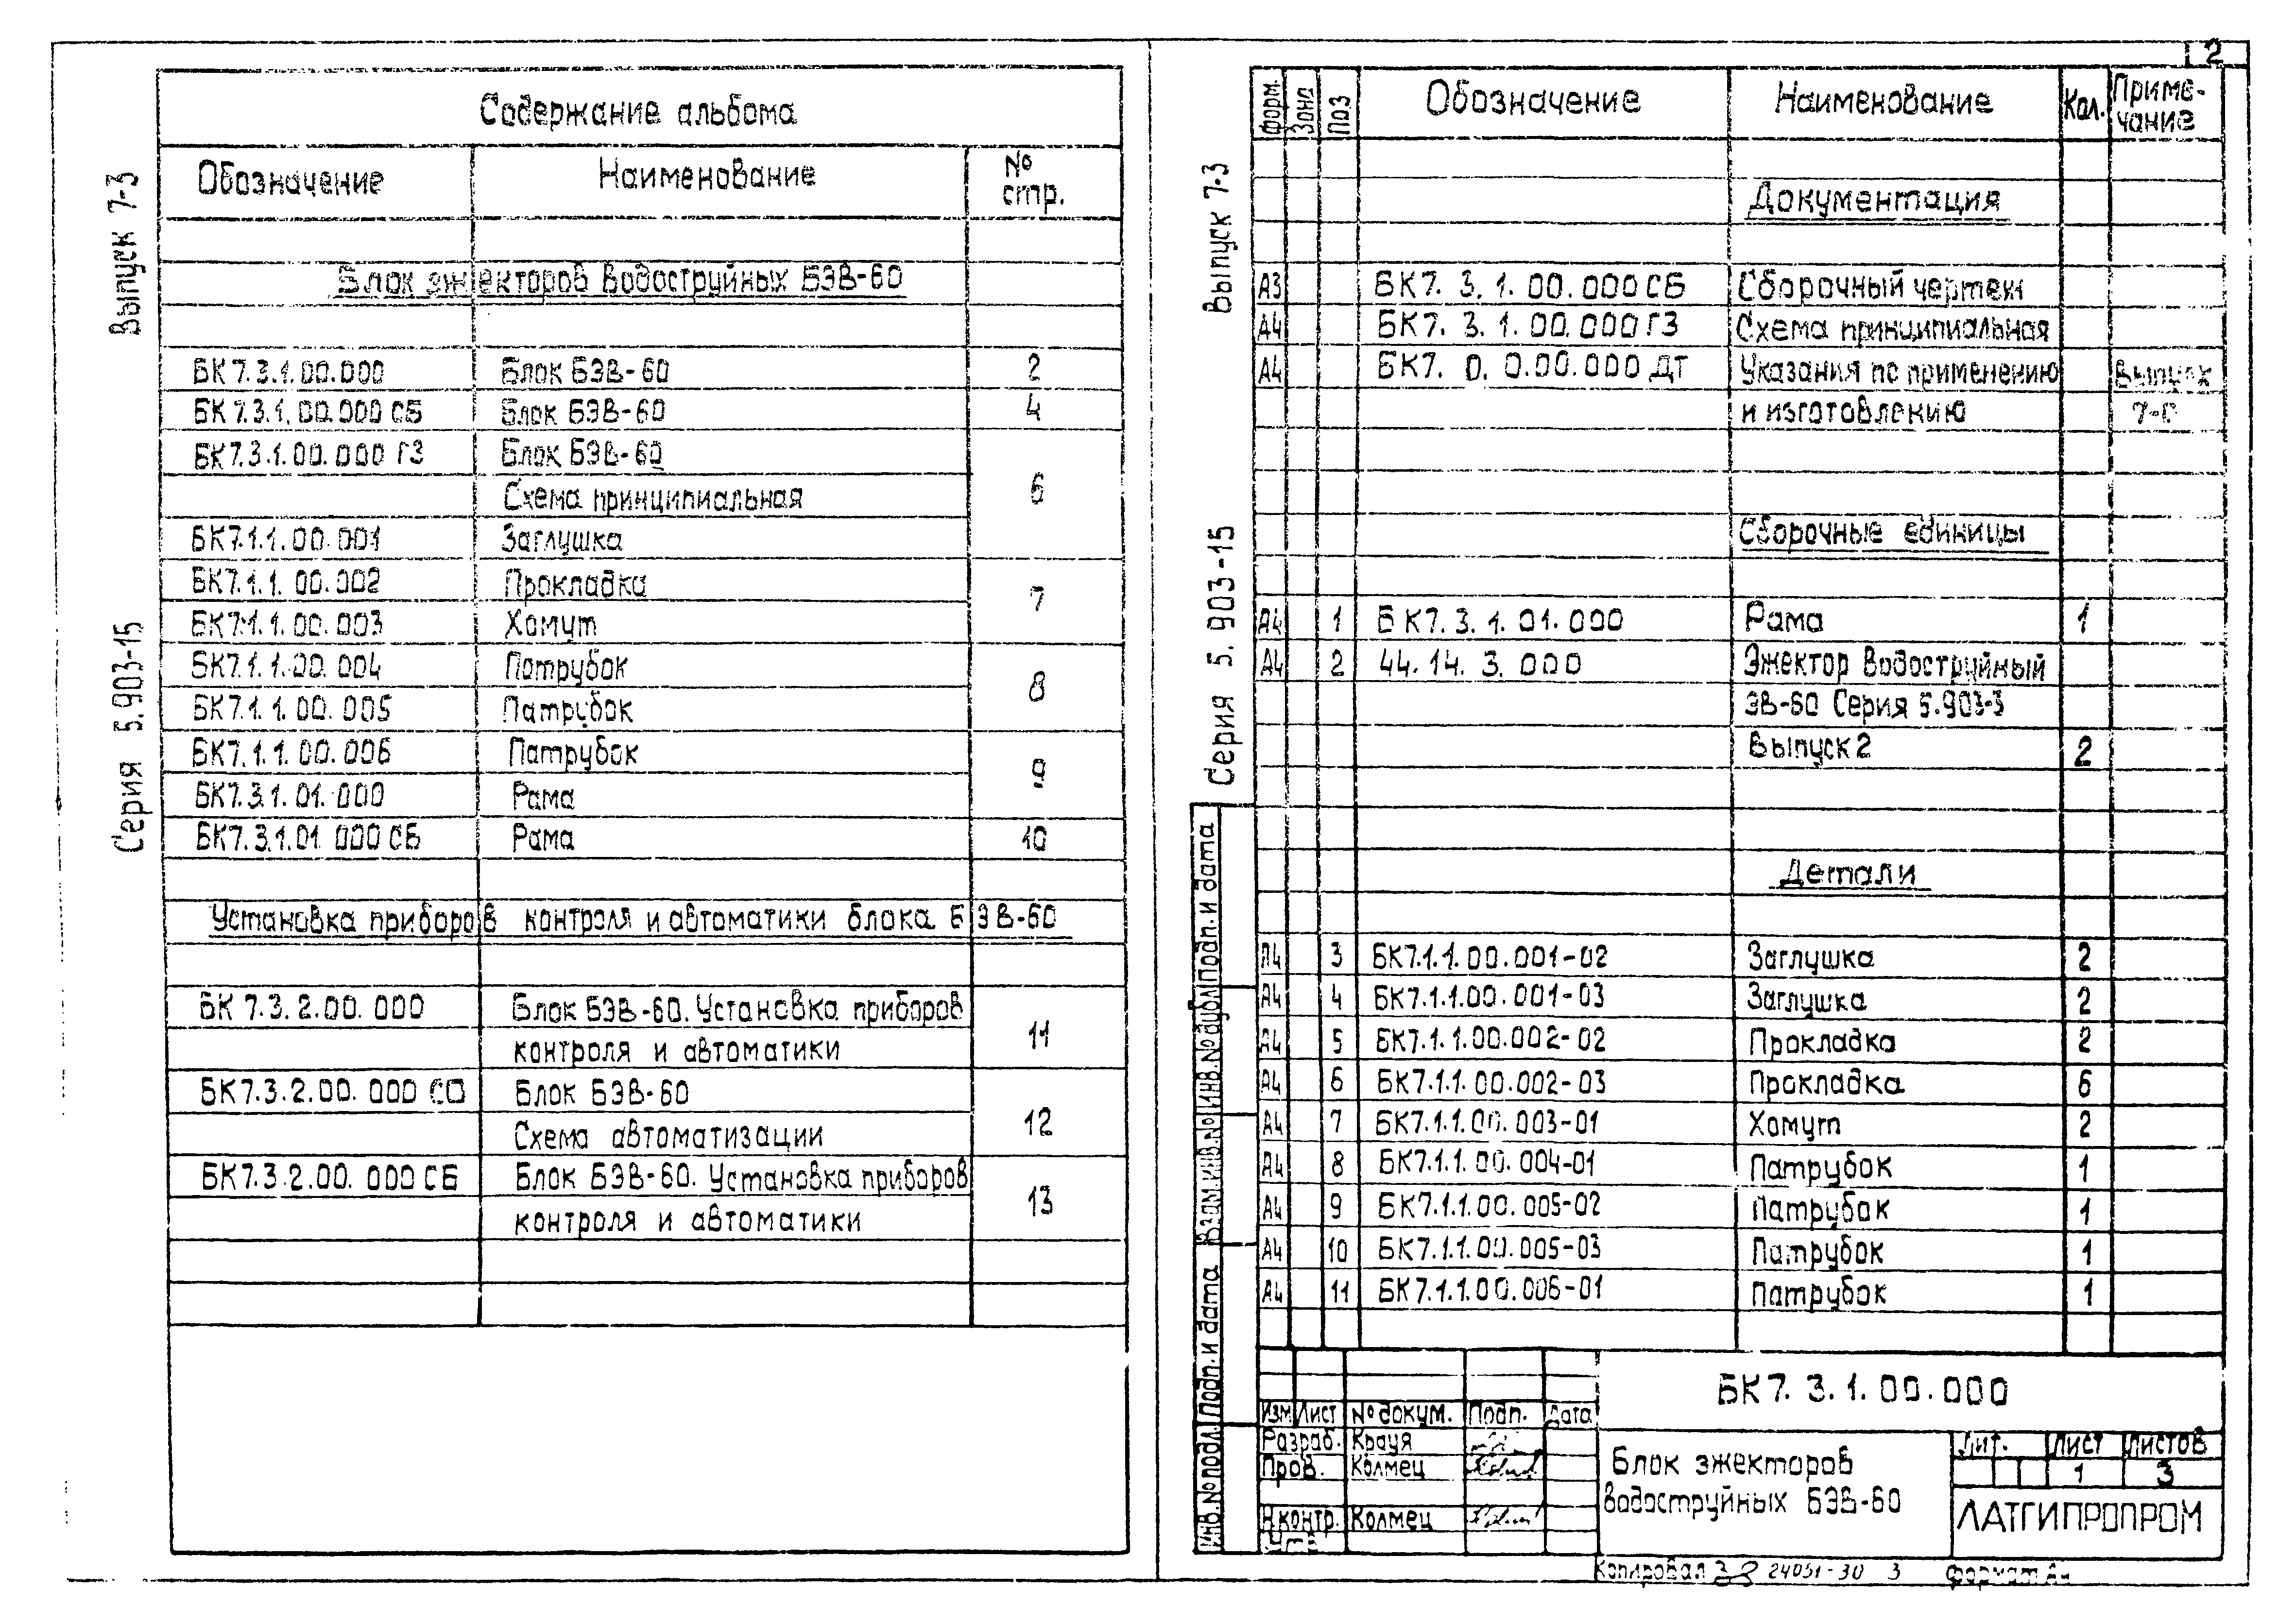 2
Выпуск 7-3
Серия 5.903-15
Содержание альбома
Обозначение Наименование № стр.
Блок эжекторов водоструйных БЭВ-60
БК7.3.1.00.000 Блок БЭВ-60 2
БК7.3.1.00.000 СБ Блок БЭВ-60 4
БК7.3.1.00.000 ГЗ Блок БЭВ-60
Схема принципиальная 6
БК7.1.1.00.001 Заглушка
БК7.1.1.00.002 Прокладка 7
БК7.1.1.00.003 Хомут
БК7.1.1.00.004 Патрубок 8
БК7.1.1.00.005 Патрубок
БК7.1.1.00.006 Патрубок 9
БК7.3.1.01.000 Рама
БК7.3.1.01.000 СБ Рама 10
Установка приборов контроля и автоматики блока БЭВ-60
БК7.3.2.00.000 Блок БЭВ-60. Установка приборов
контроля и автоматики 11
БК7.3.2.00.000 СО Блок БЭВ-60
Схема автоматизации 12
БК7.3.2.00.000 СБ Блок БЭВ-60. Установка приборов
контроля и автоматики 13
Выпуск 7-3
Серия 5.903-15
Форм. Зона Поз Обозначение Наименование Кол. Приме-
чание
Документация
А3 БК7.3.1.00.000 СБ Сборочный чертеж
А4 БК7.3.1.00.000 ГЗ Схема принципиальная
А4 БК7.0.0.00.000 ДТ Указания по применению Выпуск
и изготовлению 7-0
Сборочные единицы
А4 1 БК7.3.1.01.000 Рама 1
А4 2 44.14.3.000 Эжектор водоструйный
ЭВ-60 Серия 5.903-3
Выпуск 2 2
Детали
А4 3 БК7.1.1.00.001-02 Заглушка 2
А4 4 БК7.1.1.00.001-03 Заглушка 2
А4 5 БК7.1.1.00.002-02 Прокладка 2
А4 6 БК7.1.1.00.002-03 Прокладка 6
А4 7 БК7.1.1.00.003-01 Хомут 2
А4 8 БК7.1.1.00.004-01 Патрубок 1
А4 9 БК7.1.1.00.005-02 Патрубок 1
А4 10 БК7.1.1.00.005-03 Патрубок 1
А4 11 БК7.1.1.00.006-01 Патрубок 1
Инв.№ подл. Подп. и дата Взам.инв.№ Инв.№ дубл Подп. и дата
БК7.3.1.00.000
Изм Лист № докум. Подп. Дата
Разраб. Крауя
Пров. Колмец
Н.контр. Колмец
Блок эжекторов
водоструйных БЭВ-60
Лит. Лист Листов
1 3
ЛАТГИПРОПРОМ
Копировал 24051-30 3 Формат А4